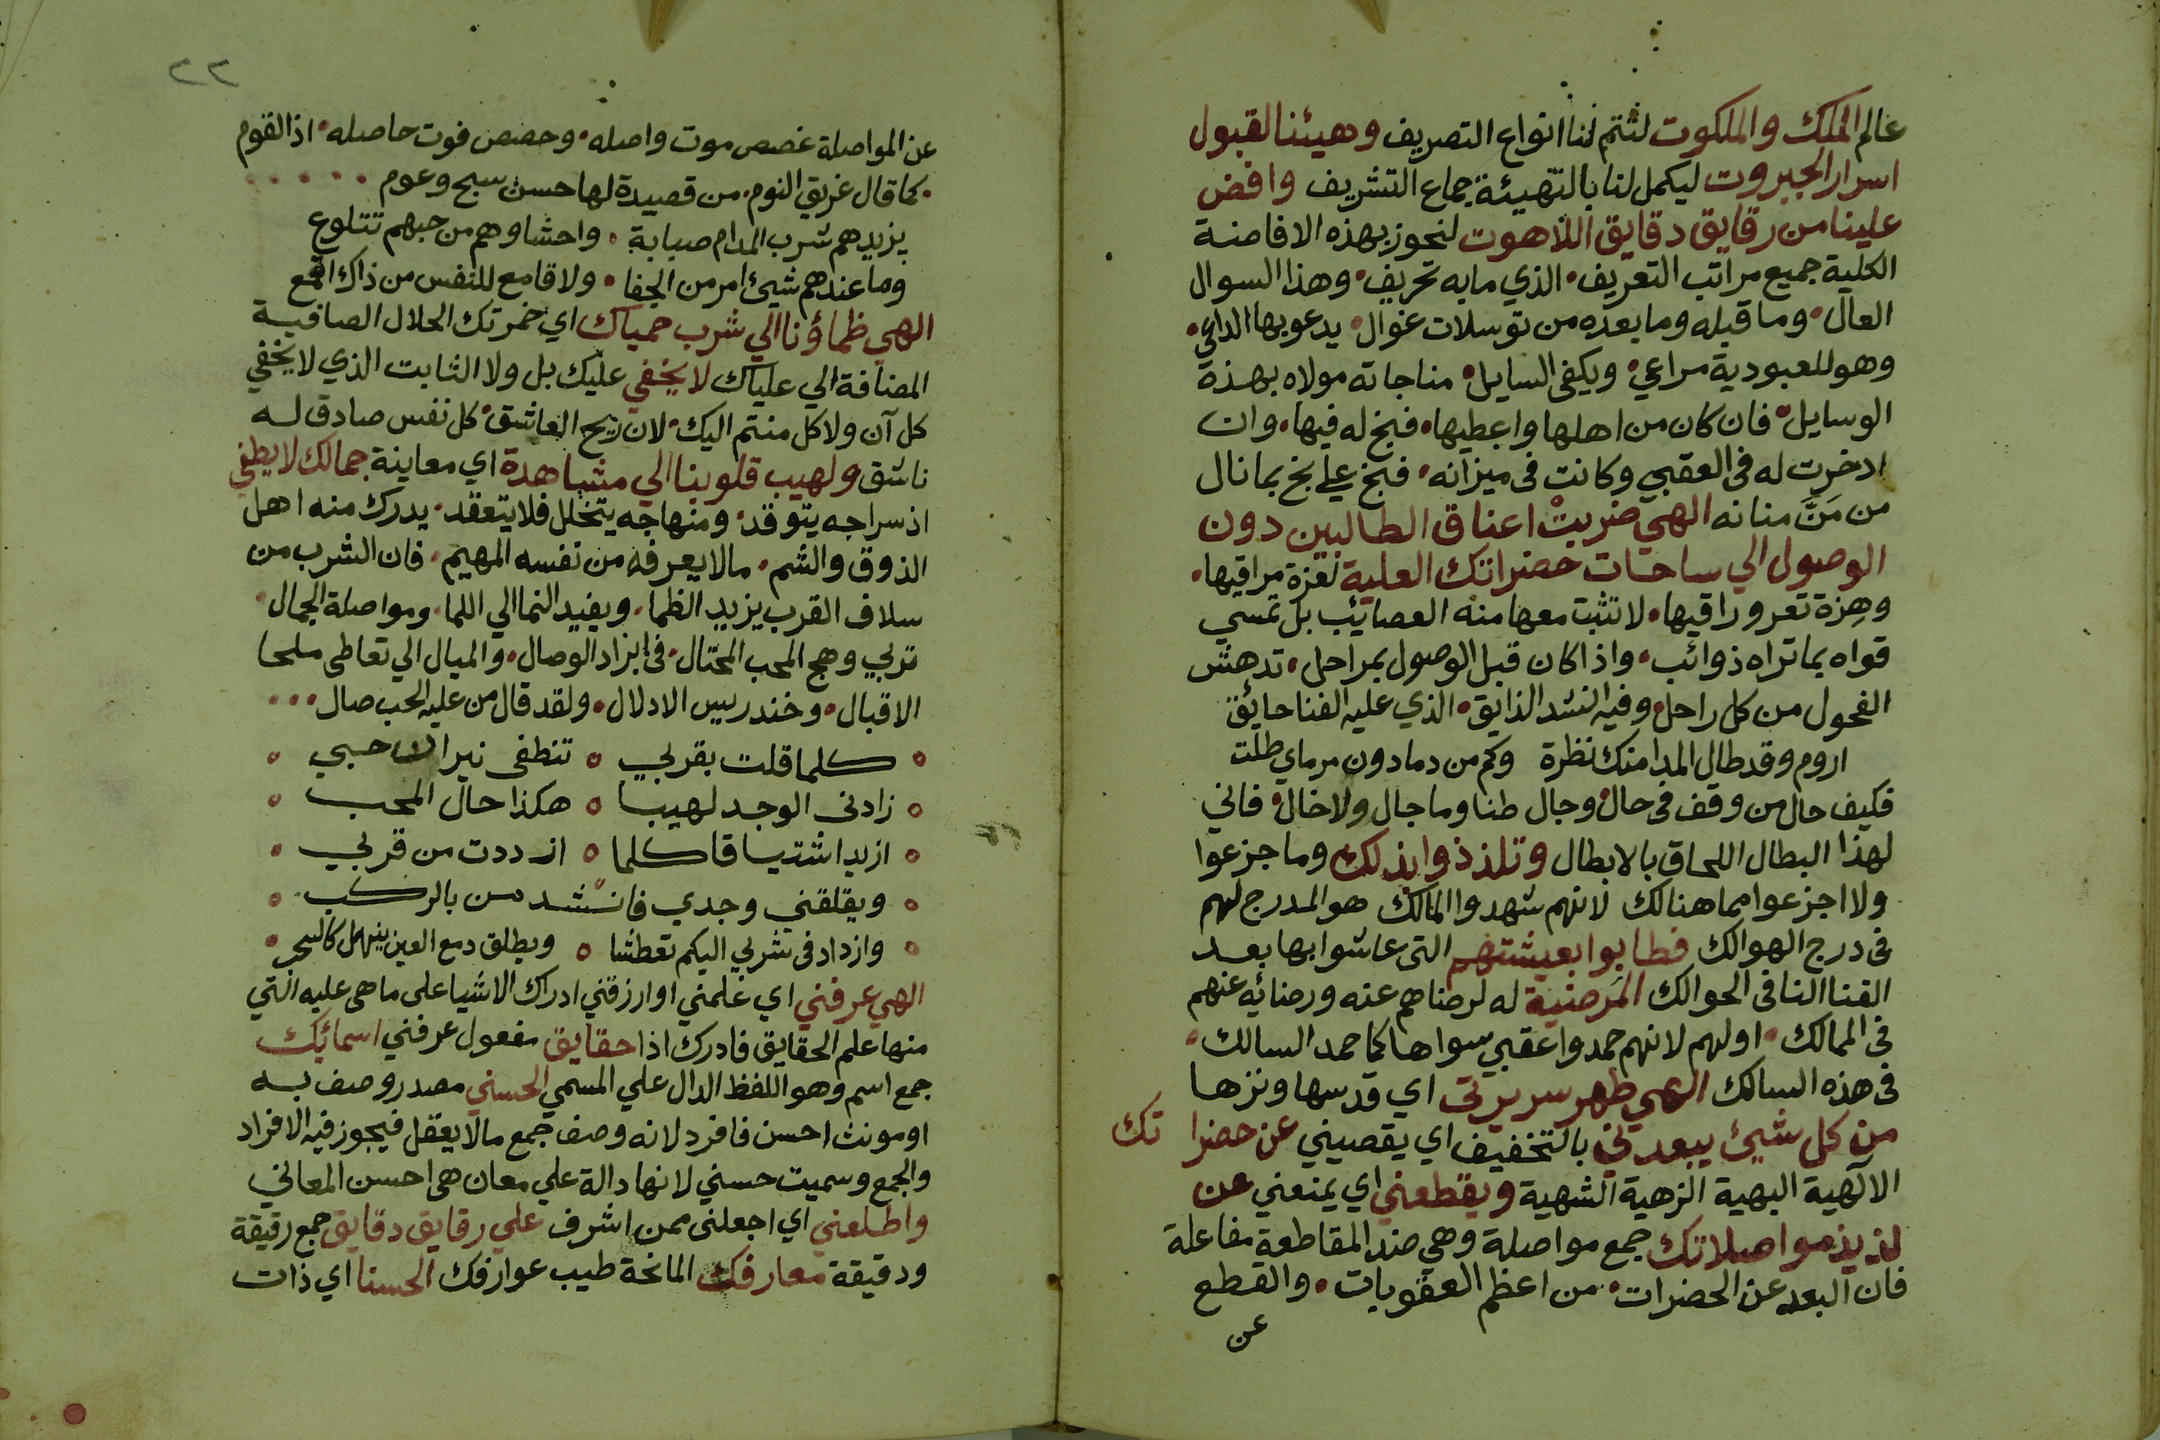 عالم الملك والملكوت لتتم لنا انواع التصريف وهيئنا لقبول
اسرار الجبروت ليكمل لنا بالتهيئة جماع التشريف وافض
علينا من رقايق دقايق اللاهوت لنحوز بهذه الافاضة
الكلية جميع مراتب التعريف الذي ما به تحريف وهذا السوال
العال وما قبله وما بعده من توسلات غوال يدعو بها الداعي
وهو للعبودية مراعي ويكفي السايل مناجاته مولاه بهذه
الوسايل فان كان من اهلها واعطيها فبخ له فيها وان
ادخرت له في العقبي وكانت في ميزانه فبخ علي بخ بما نال
من مَنِّ منانه الهي ضربتْ اعناق الطالبين دون
الوصول الي ساحات حضراتك العلية لعزة مراقيها
وهزة تعرو راقيها لا تثبت معها منه العصايب بل تمسي
قواه بما تراه ذوائب واذا كان قبل الوصول بمراحل تدهش
الفحول من كل راحل وفيه انشد الذايق الذي عليه الفنا حايق
اروم وقد طال المدا منك نظرة وكم من دما دون مرماي طلت
فكيف حال من وقف في حال وجال طنا وما جال ولا خال فاني
لهذا البطال اللحاق بالابطال وتلذذوا بذلك وما جزعوا
ولا اجزعوا مما هنالك لانهم شهدوا المالك هو المدرج لهم
في درج الهوالك فطابوا بعيشتهم التي عاشوا بها بعد
الفنا النا في الحوالك المَرضية له لرضاهم عنه ورضائه عنهم
في الممالك اولهم لانهم حمدوا عقبي سواها كما حمد السالك
في هذه السالك الهي طهر سريرتي اي قدسها ونزها
من كل شيئ يبعدني بالتخفيف اي يقصيني عن حضراتك
الالهية البهية الزهية الشهية ويقطعني اي يمنعني عن
لذيذ مواصلاتك جمع مواصلة وهي ضد المقاطعة مفاعلة
فان البعد عن الحضرات من اعظم العقوبات والقطع
عن
٢٢
عن المواصلة غصص موت واصله وحصص فوت حاصله اذ القوم
كما قال غريق النوم من قصيدة لها حسن سبح وعوم
يزيدهم شرب المدام صبابة واحشاوهم من حبهم تتلوع
وما عندهم شيئ امر من الجفا ولا قامع للنفس من ذاك اقمع
الهي ظماؤنا الي شرب حمياك اي خمرتك الحلال الصافية
المضافة الي علياك لا يخفي عليك بل ولا الثابت الذي لا يخفي
كل آن ولا كل منتم اليك لان ريح العاشق كل نفس صادق له
ناشق ولهيب قلوبنا الي مشاهدة اي معاينة جمالك لا يطفي
اذ سراجه يتوقد ومنهاجه يتخلل فلا يتعقد يدرك منه اهل
الذوق والشم ما لا يعرفه من نفسه المهيم فان الشرب من
سلاف القرب يزيد الظما ويفيد النما الي اللما ومواصلة الجمال
تربي وهج المحب المحتال في ابزاد الوصال والميال الي تعاطي ملحا
الاقبال وخندريس الادلال ولقد قال من عليه الحب صال
كلما قلت بقربي تنطفي نيران حبي
زادني الوجد لهيبا هكذا حال المحب
ازيد اشتياقا كلما ازددت من قربي
ويقلقني وجدي فانشد من بالركب
وازداد في شربي اليكم تعطشا ويطلق دمع العين ينهل كالسحب
الهي عرفني اي علمني او ارزقني ادراك الاشيا علي ما هي عليه التي
منها علم الحقايق فادرك اذا حقايق مفعول عرفني اسمائك
جمع اسم وهو اللفظ الدال علي المسمي الحسني مصدر وصف به
او مونث احسن فافرد لانه وصف جمع ما لا يعقل فيجوز فيه الافراد
والجمع وسميت حسني لانها دالة علي معان هي احسن المعاني
واطلعني اي اجعلني ممن اشرف علي رقايق دقايق جمع رقيقة
ودقيقة معارفك المانحة طيب عوارفك الحسنا اي ذات